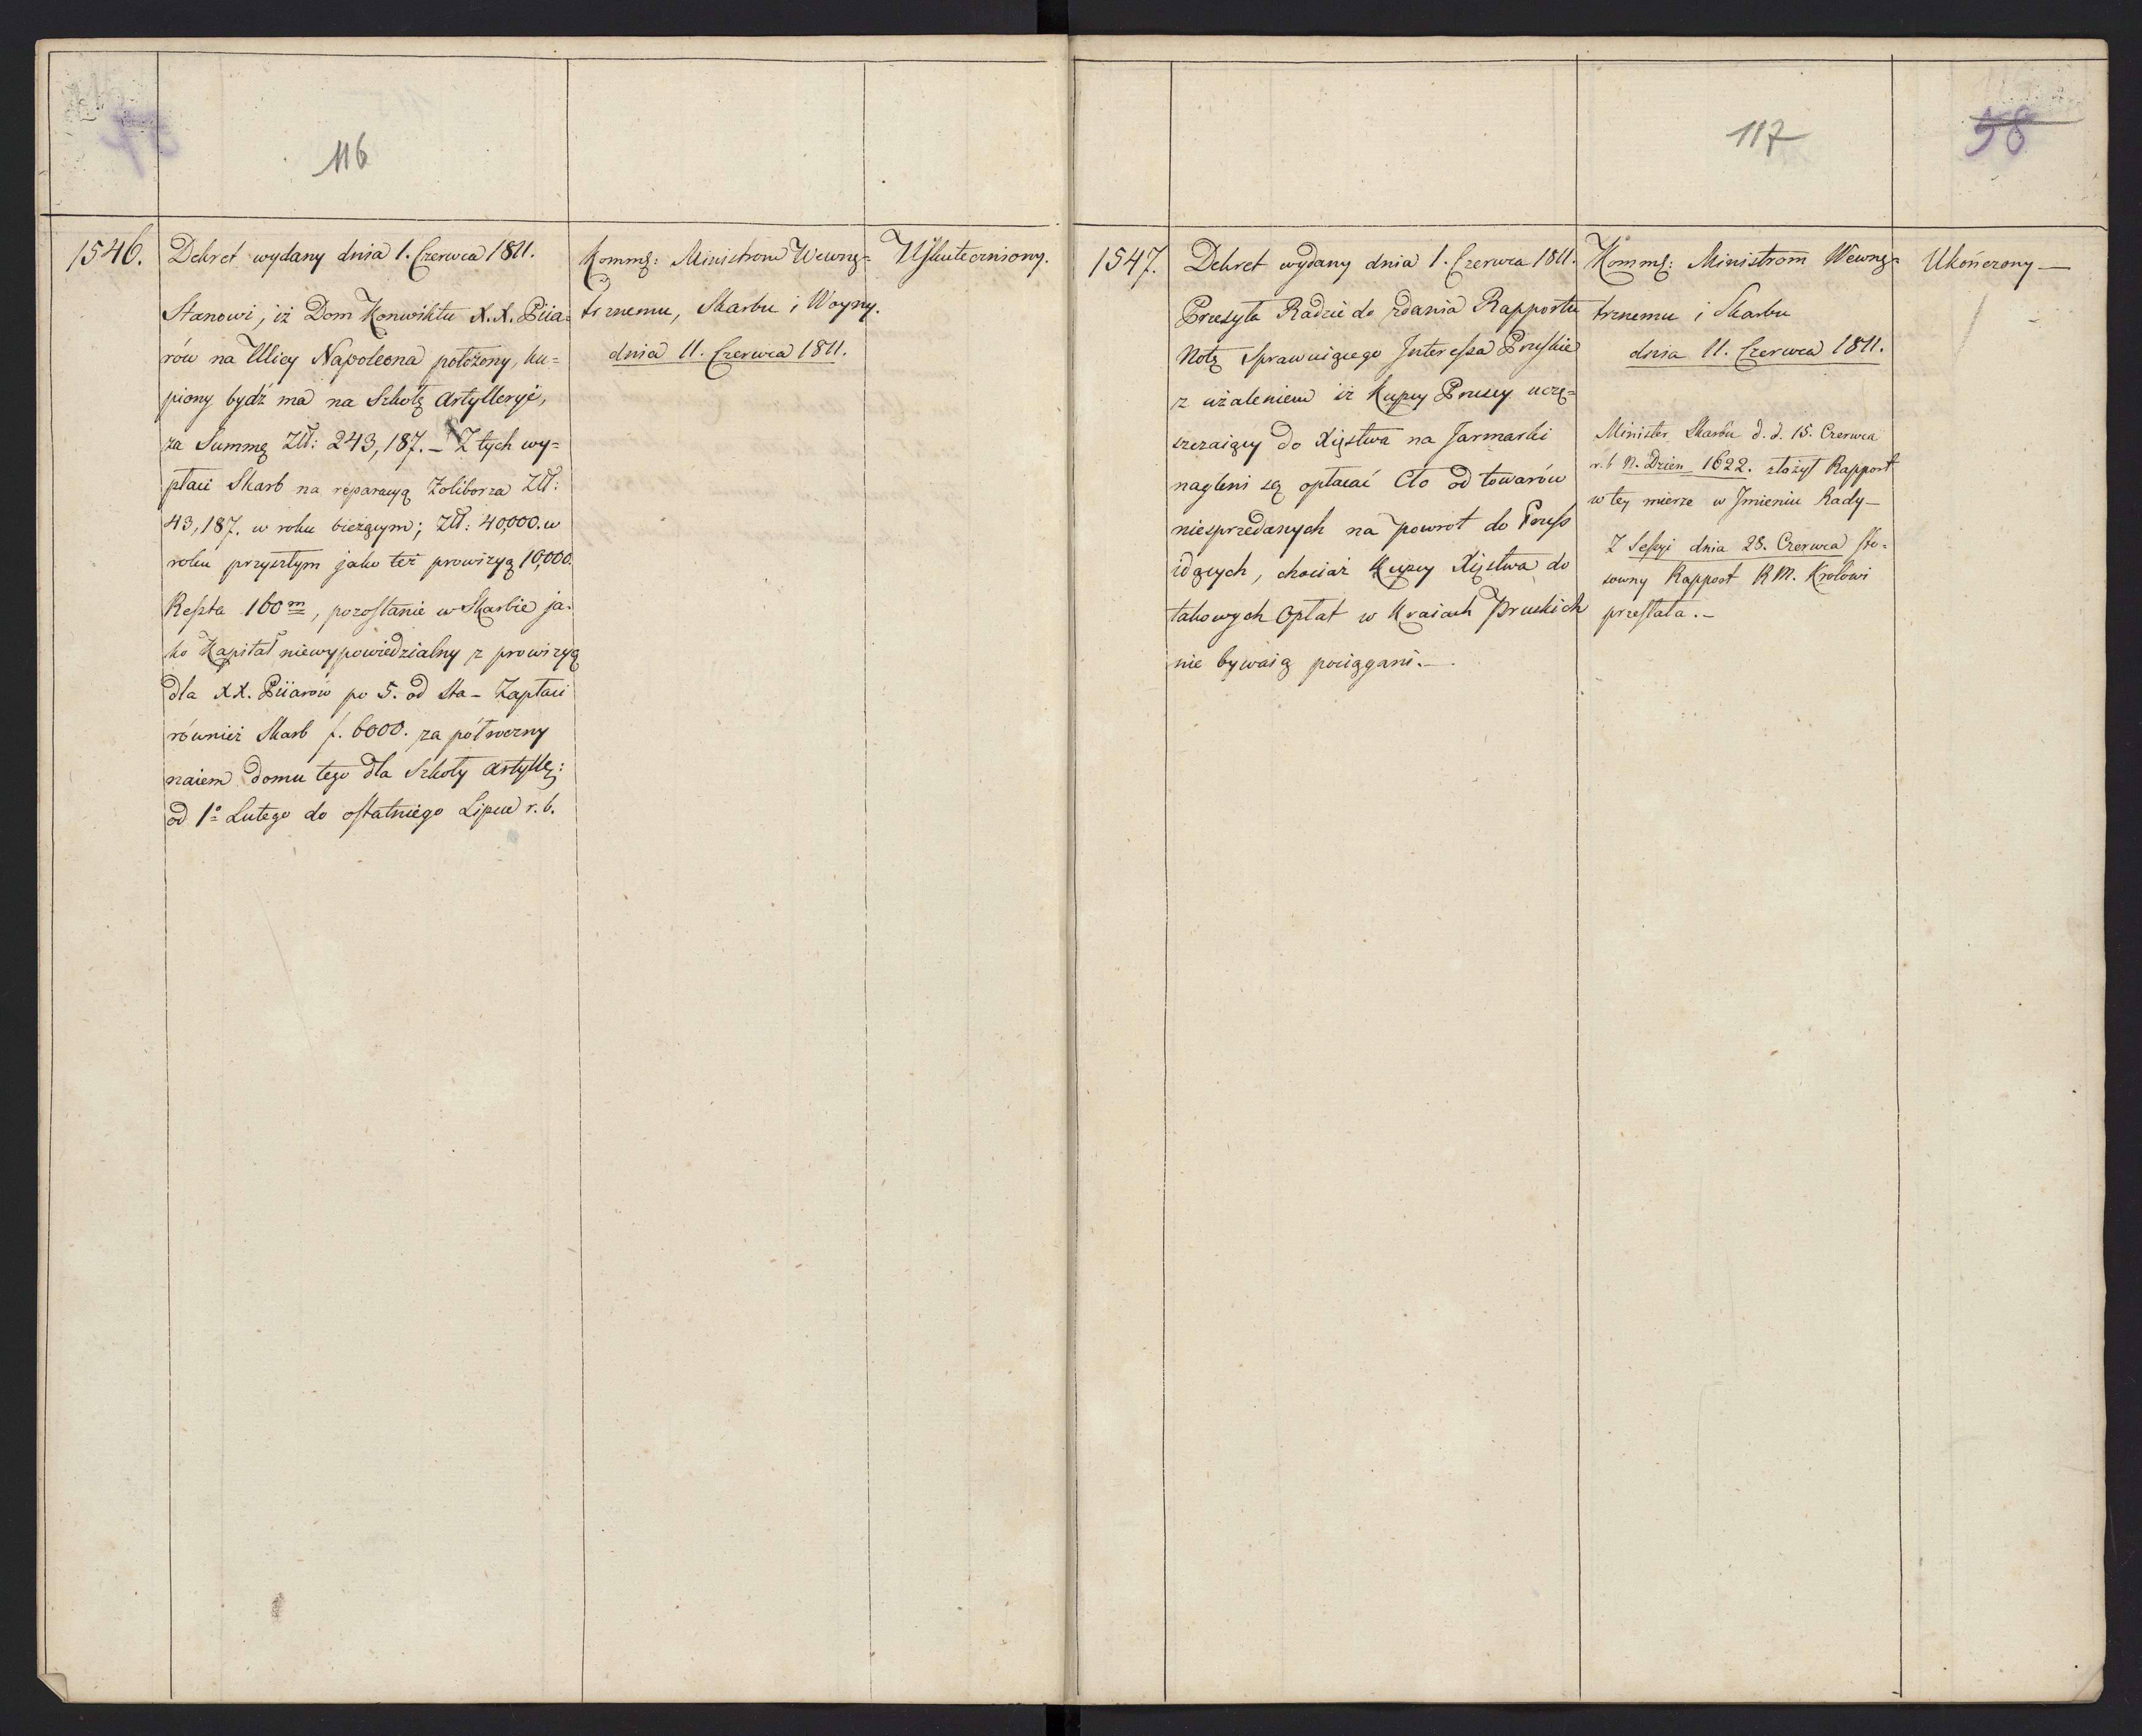 116
1546.
Dekret wydany dnia 1. Czerwca 1811.
Stanowi, iż Dom Konwiktu X.X. Piia=
rów na Ulicy Napoleona położony, ku=
piony bydź ma na Szkołę Artylleryi,
za Summę Złł: 243,187. – Z tych wy=
płaci Skarb na reparacyą Żoliborza Złł:
43,187. w roku bieżącym; Złł: 40,000. w
roku przyszłym jako też prowizyą 10,000.
Reszta 160m, pozostanie w Skarbie ja=
ko Kapitał niewypowiedzialny z prowizyą
dla XX. Piiarów po 5. od Sta – Zapłaci
również Skarb f. 6000. za półroczny
naiem domu tego dla Szkoły Artylle:
od 1o Lutego do ostatniego Lipca r. b.
Kommę: Ministrom Wewnę=
trznemu, Skarbu i Woyny.
dnia 11. Czerwca 1811.
Uskuteczniony.
117
58
1547.
Dekret wydany dnia 1. Czerwca 1811.
Przesyła Radzie do zdania Rapportu
Notę sprawuiącego Interessa Pruskie
z użaleniem iż Kupcy Pruscy uczę=
szczaiący do Xięstwa na Jarmarki
nagleni są opłacać Cło od towarów
niesprzedanych na powrot do Pruss
idących, chociaż Kupcy Xięstwa do
takowych Opłat w Kraiach Pruskich
nie bywaią pociągani. –
Kommę: Ministrom Wewnę=
trznemu i Skarbu
dnia 11. Czerwca 1811.
Minister Skarbu d. d. 15. Czerwca
r. b N. Dzien 1622. złożył Rapport
w tey mierze w Jmieniu Rady –
Z Sessyi dnia 28. Czerwca sto=
sowny Rapport R.M. Krolowi
przesłała. –
Ukończony –